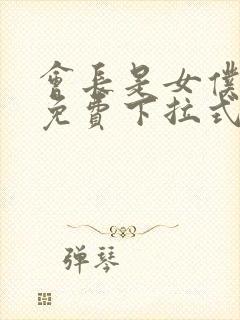 會長是女僕
免費下拉式
弹琴